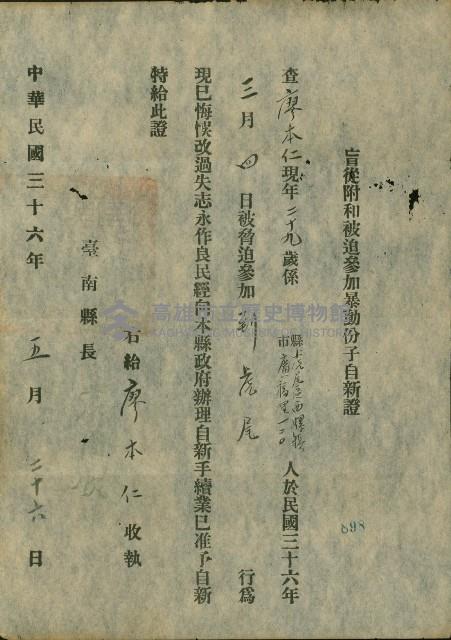 盲從附和被迫參加暴動份子自新證
查廖本仁現年二十九歲係 縣市 人於民國三十六年
三月四日被脅迫參加 虎尾 行為
現已悔悞改過失志永作良民經向本縣政府辦理自新手續業已准予自新
特給此證
右給廖本仁收執
臺南縣長
中華民國三十六年五月二十六日
898
高雄市立歷史博物館
KAOHSIUNG MUSEUM OF HISTORY